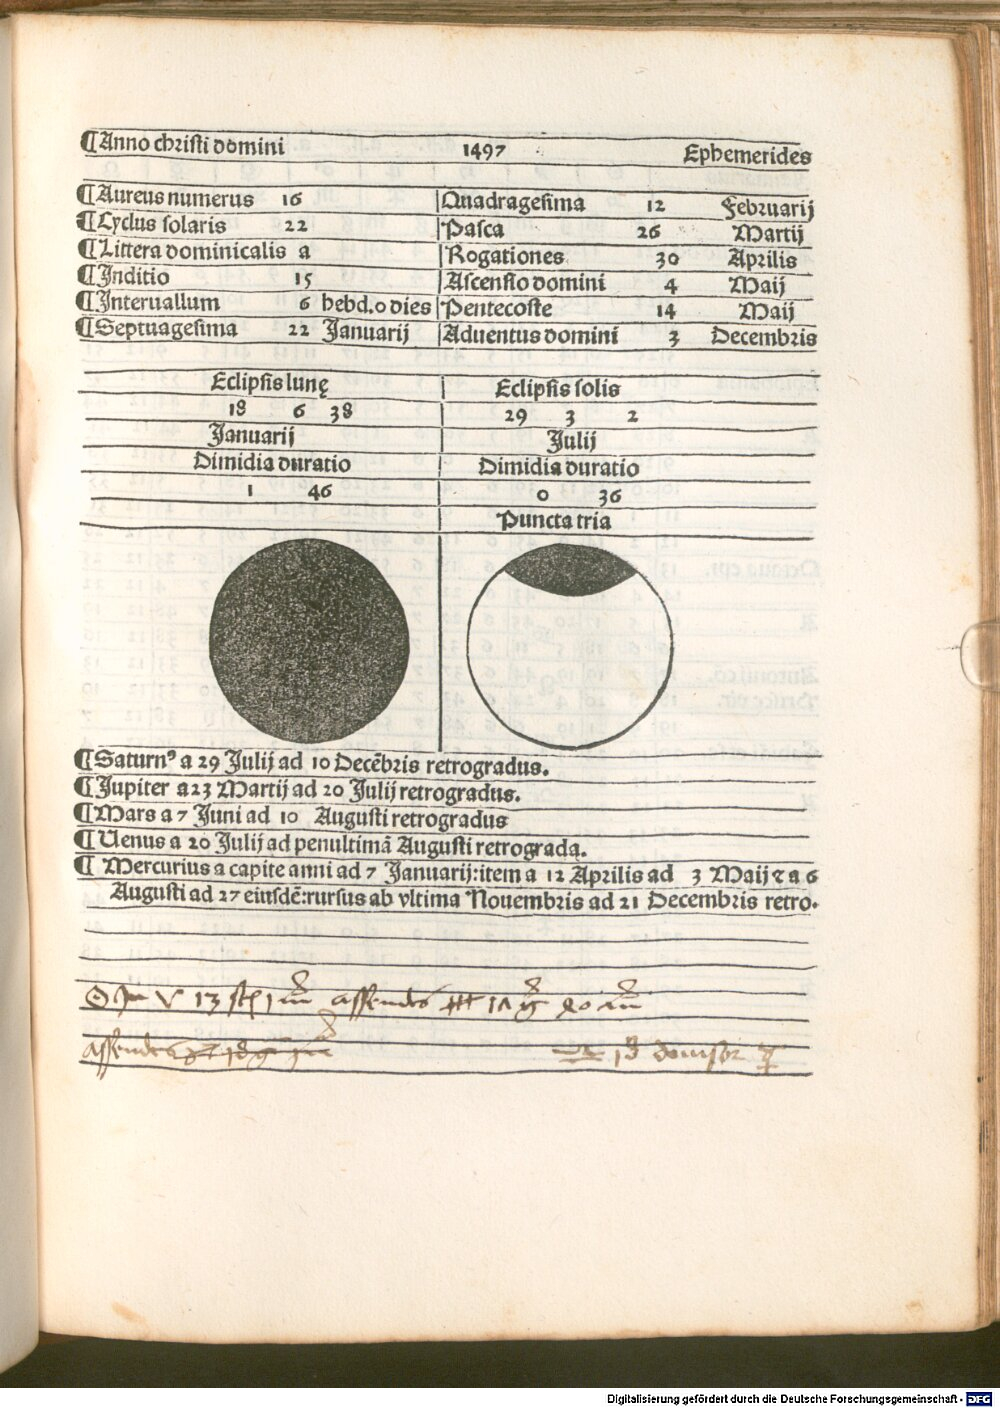 ¶Anno christi domini 1497 Ephemerides
¶Aureus numerus 16 Quadragesima 12 Februarij
¶Cyclus solaris 22 Pasca 26 Martij
¶Littera dominicalis a Rogationes 30 Aprilis
¶Inditio 15 Ascensio domini 4 Maij
¶Interuallum 6 hebd.0 dies Pentecoste 14 Maij
¶Septuagesima 22 Januarij Aduentus domini 3 Decembris
Eclipsis lunę Eclipsis solis
18 6 38 29 3 2
Januarij Julij
Dimidia duratio Dimidia duratio
1 46 0 36
Puncta tria
¶Saturnꝰ a 29 Julij ad 10 Decēbris retrogradus.
¶Jupiter a 23 Martij ad 20 Julij retrogradus.
¶Mars a 7 Juni ad 10 Augusti retrogradus
¶Uenus a 20 Julij ad penultimā Augusti retrograda.
¶Mercurius a capite anni ad 7 Januarij:item a 12 Aprilis ad 3 Maij ⁊ a 6
Augusti ad 27 eiusdē:rursus ab vltima Nouembris ad 21 Decembris retro.
Digitalisierung gefördert durch die Deutsche Forschungsgemeinschaft - DFG